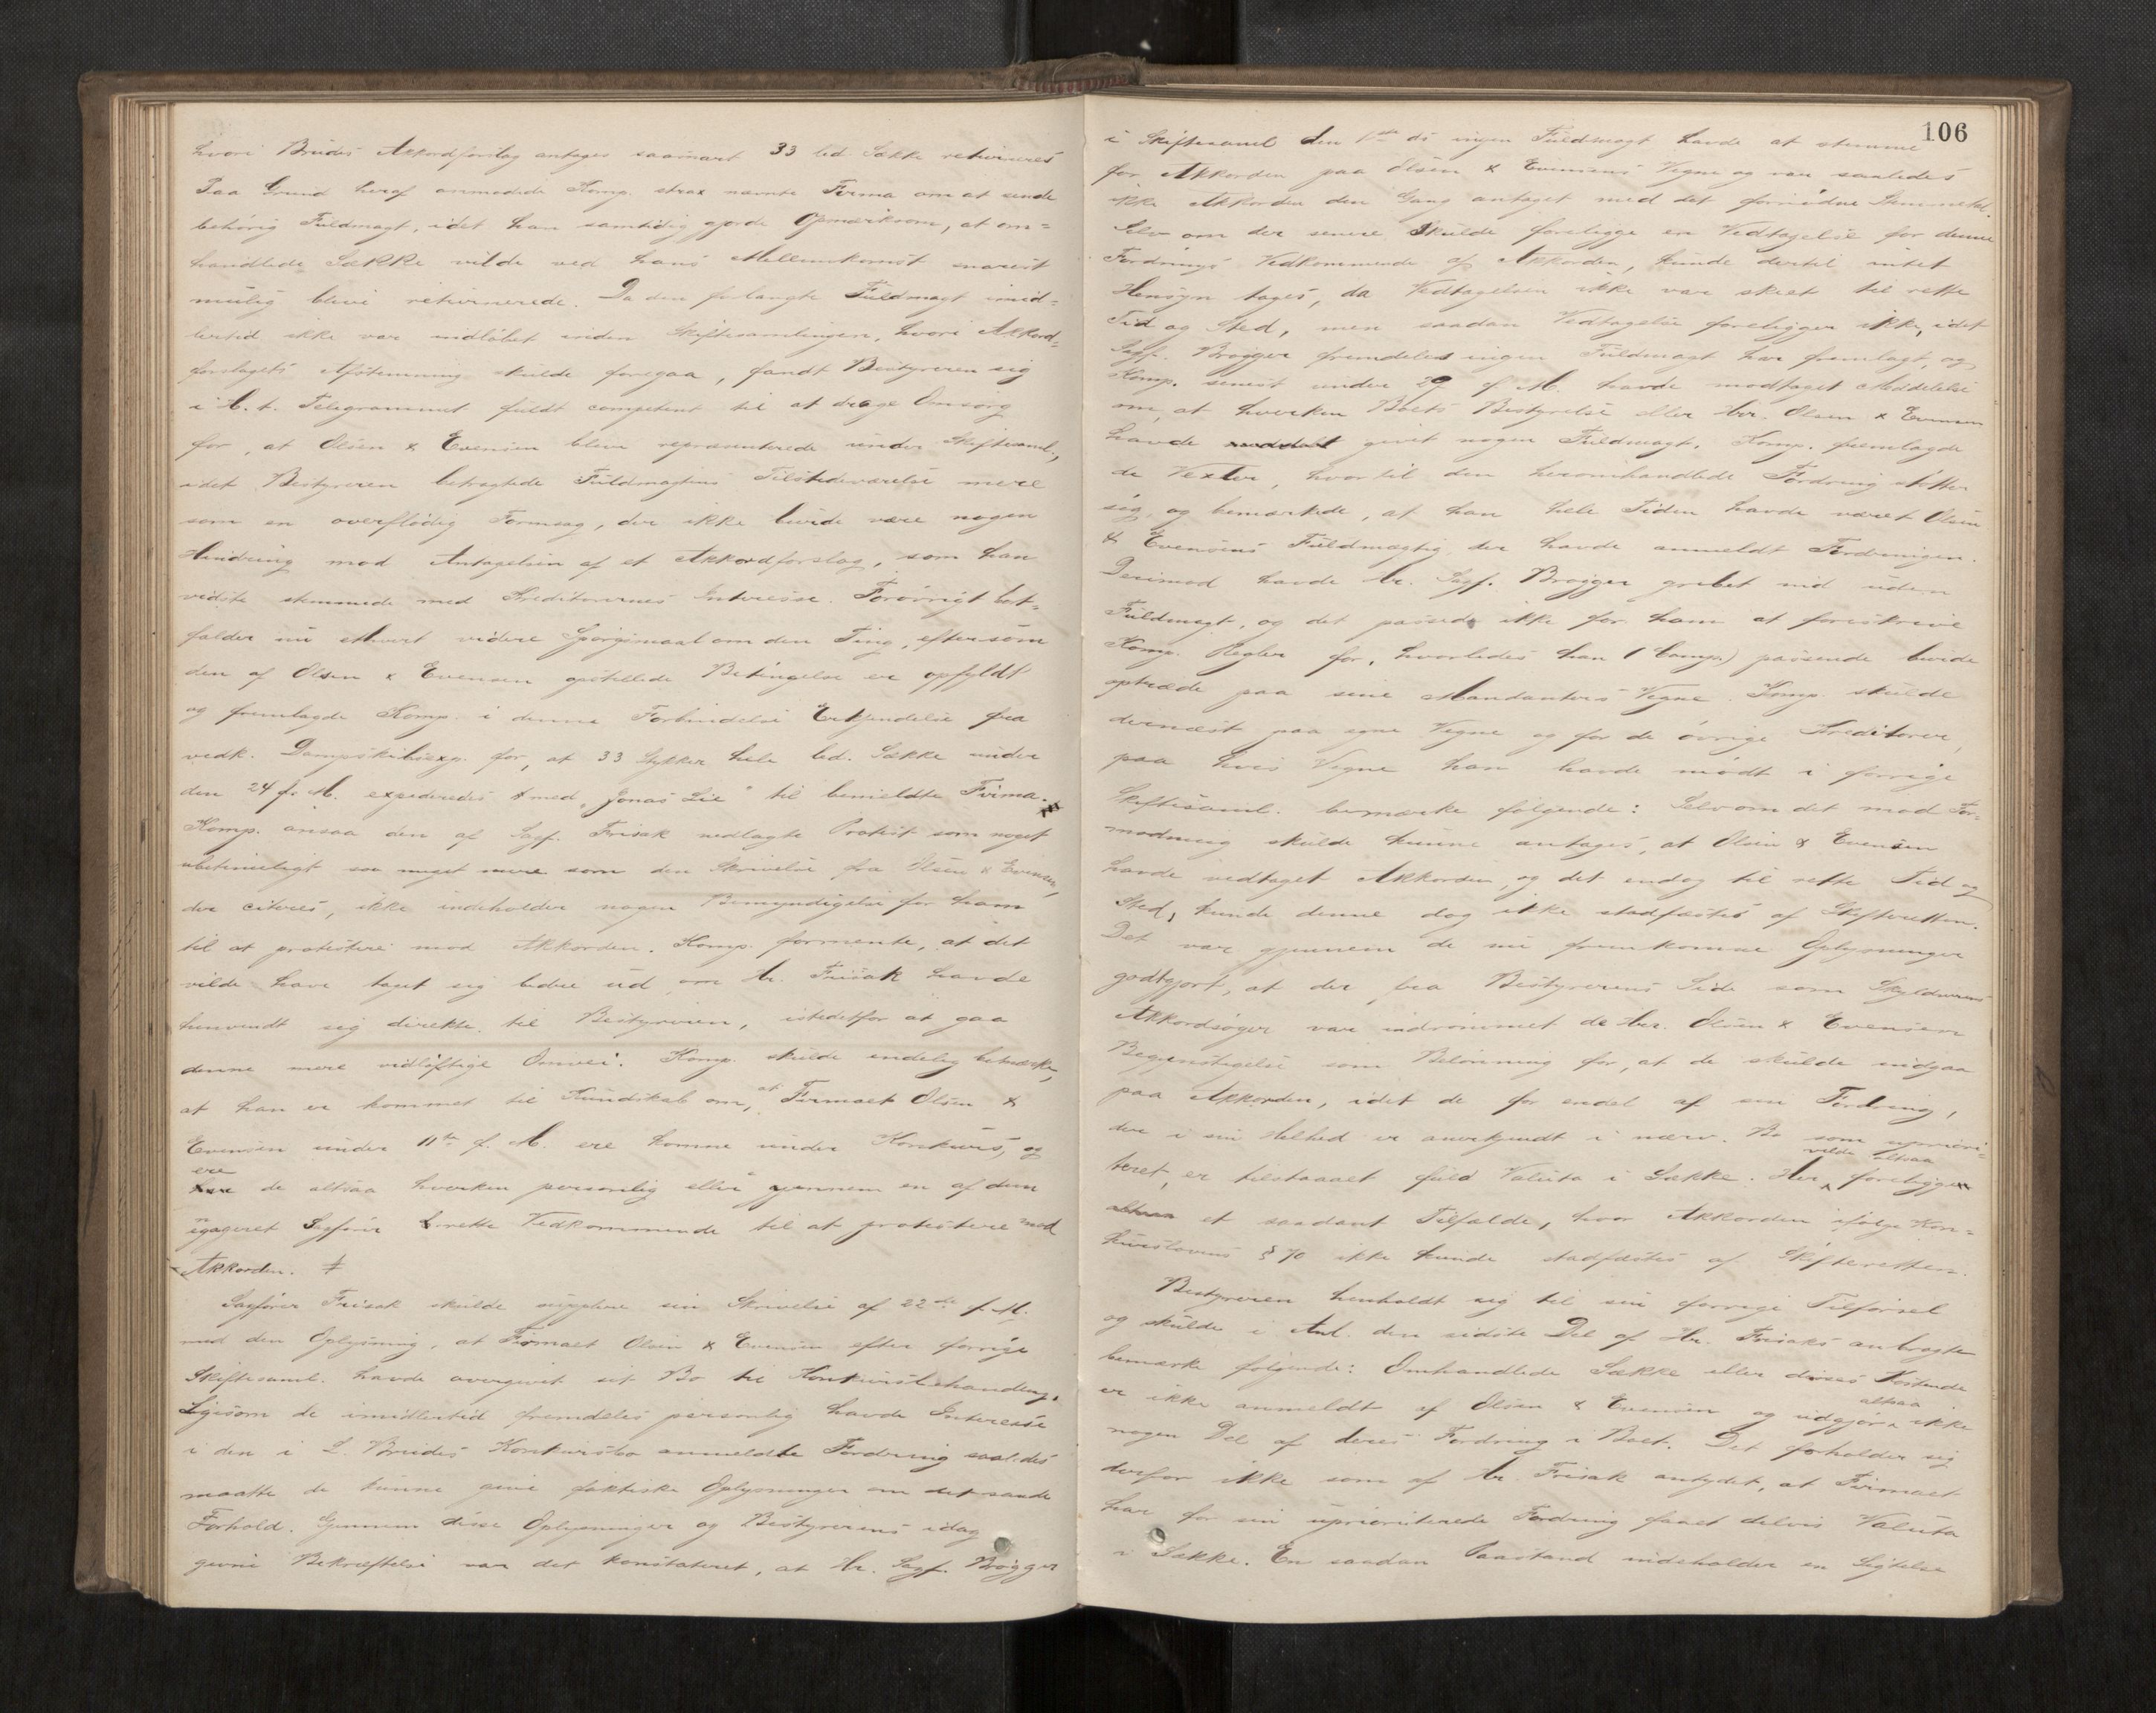 hvori Bruds Akkordforslag antages saasnart 33 led. Sække returneres
Paa Grund heraf anmodede Komp. strax nævnte Firma om at sende
behørig Fuldmagt, idet han samtidig gjorde Opmærksom, at om-
handlede Sække vilde ved hans Mellemkomst snarest
mulig blive returnerede. Da den forlangte Fuldmagt imid-
lertid ikke var indløbet inden Skiftesamlingen, hvori Akkord-
forslagets Afstemning skulde foregaa, fandt Bestyreren sig
i H. t. Telegrammet fuldt competent til at drage Omsorg
for, at Olsen & Evensen bleve repræsenterede under Skiftesaml.,
idet Bestyreren betragtede Fuldmagtens Tilstedeværelse mere
som en overflødig Formsag, der ikke burde være nogen
Hindring mod Antagelsen af et Akkordforslag, som han
vidste stemmede med Kreditorernes Interesse. Forøvrigt bort-
falder nu ethvert videre Spørgsmaal om den Ting, eftersom
den af Olsen & Evensen opstillede Betingelse er opfyldt
og fremlagde Komp. i denne Forbindelse Erkjendelse fra
vedk. Dampskibsexp. for, at 33 Stykker hele led. Sække under
den 24 f. M. expederedes med "Jonas Lie" til bemeldte Firma.
Komp. ansaa den af Sagf. Frisak nedlagte Protest som noget
ubetimeligt saa meget mere som den Skrivelse fra Olsen & Evensen,
der citeres, ikke indeholder nogen Bemyndigelse for ham
til at protestere mod Akkorden. Komp. formente, at det
vilde have taget sig bedre ud om Hr. Frisak havde
henvendt sig direkte til Bestyreren, istedetfor at gaa
denne mere vidløftige Omvei. Komp. skulde endelig bemærke,
at han er kommet til Kundskab om, at Firmaet Olsen &
Evensen under 11te f. M. ere komne under Konkurs, og
ere de altsaa hverken personlig eller gjennem en af dem
engageret Sagfører rette Vedkommende til at protestere mod
Akkorden.
Sagfører Frisak skulde supplere sin Skrivelse af 22de f. M.
med den Oplysning, at Firmaet Olsen & Evensen efter forrige
Skiftesaml. havde overgivet sit Bo til Konkursbehandling.
Ligesom de imidlertid fremdeles personlig havde Interesse
i den i L. Bruds Konkursbo anmeldte Fordring saaledes
maatte de kunne give faktiske Oplysninger om det sande
Forhold. Gjennem disse Oplysninger og Bestyrerens idag
givne Bekræftelse var det konstateret, at Hr. Sagf. Brøgger
106
i Skiftesaml. den 1ste ds ingen Fuldmagt havde at stemme
for Akkorden paa Olsen & Evensens Vegne og var saaledes
ikke Akkorden den Gang antaget med det fornødne Stemmetal.
Selv om der senere skulde foreligge en Vedtagelse for denne
Fordrings Vedkommende af Akkorden, kunde dertil intet
Hensyn tages, da Vedtagelsen ikke var skeet til rette
Tid og Sted, men saadan Vedtagelse foreligger ikke, idet
Sagf. Brøgger fremdeles ingen Fuldmagt har fremlagt, og
Komp. senest under 29 f. M. havde modtaget Meddelelse
om, at hverken Boets Bestyrelse eller Hrr. Olsen & Evensen
havde givet nogen Fuldmagt. Komp. fremlagde
de Vexler, hvortil den heromhandlede Fordring støtter
sig, og bemærkede, at han hele Tiden havde været Olsen
& Evensens Fuldmægtig, der havde anmeldt Fordringen.
Derimod havde Hr. Sagf. Brøgger grebet ind uden
Fuldmagt, og det passede ikke for ham at foreskrive
Komp. Regler for, hvorledes han (Comp.) passende burde
optræde paa sine Mandanters Vegne. Komp skulde
dernæst paa egne Vegne og for de øvrige Kreditorer,
paa hvis Vegne han havde mødt i forrige
Skiftesaml. bemærke følgende: Selv om det mod For-
modning skulde kunne antages, at Olsen & Evensen
havde vedtaget Akkorden, og det endog til rette Tid og
Sted, kunde denne dog ikke stadfæstes af Skifteretten.
Det var gjennem de nu fremkomne Oplysninger
godtgjort, at der fra Bestyrerens Side som Skyldnerens
Akkordsøger var indrømmet de Hrr. Olsen & Evensen
Begunstigelse som Belønning for, at de skulde indgaa
paa Akkorden, idet de for endel af sin Fordring,
der i sin Helhed er anerkjendt i nærv. Bo som upriori-
teret, er tilstaaet fuld Valuta i Sække. Her vilde altsaa foreligge
et saadant Tilfælde, hvor Akkorden ifølge Kon-
kurslovens § 70 ikke kunde stadfæstes af Skifteretten.
Bestyreren henholdt sig til sin forrige Tilførsel
og skulde i Anl. den sidste Del af Hr. Frisaks anbragte
bemærke følgende: Omhandlede Sække eller disses Kostende
er ikke anmeldt af Olsen & Evensen og udgjør altsaa ikke
nogen Del af deres Fordring i Boet. Det forholder sig
derfor ikke som af Hr. Frisak antydet, at Firmaet
har for sin uprioriterede Fordring faaet delvis Valuta
i Sække. En saadan Paastand indeholder en Sigtelse